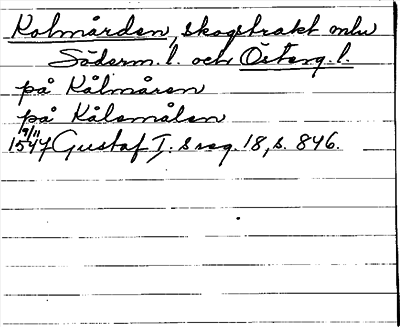 Kolmården, skogstrakt mlu
Söderm. l. och Österg. l.
på Kålmåren
på Kålsmålen
19/11
1547 Gustaf I:s reg. 18, s. 846.